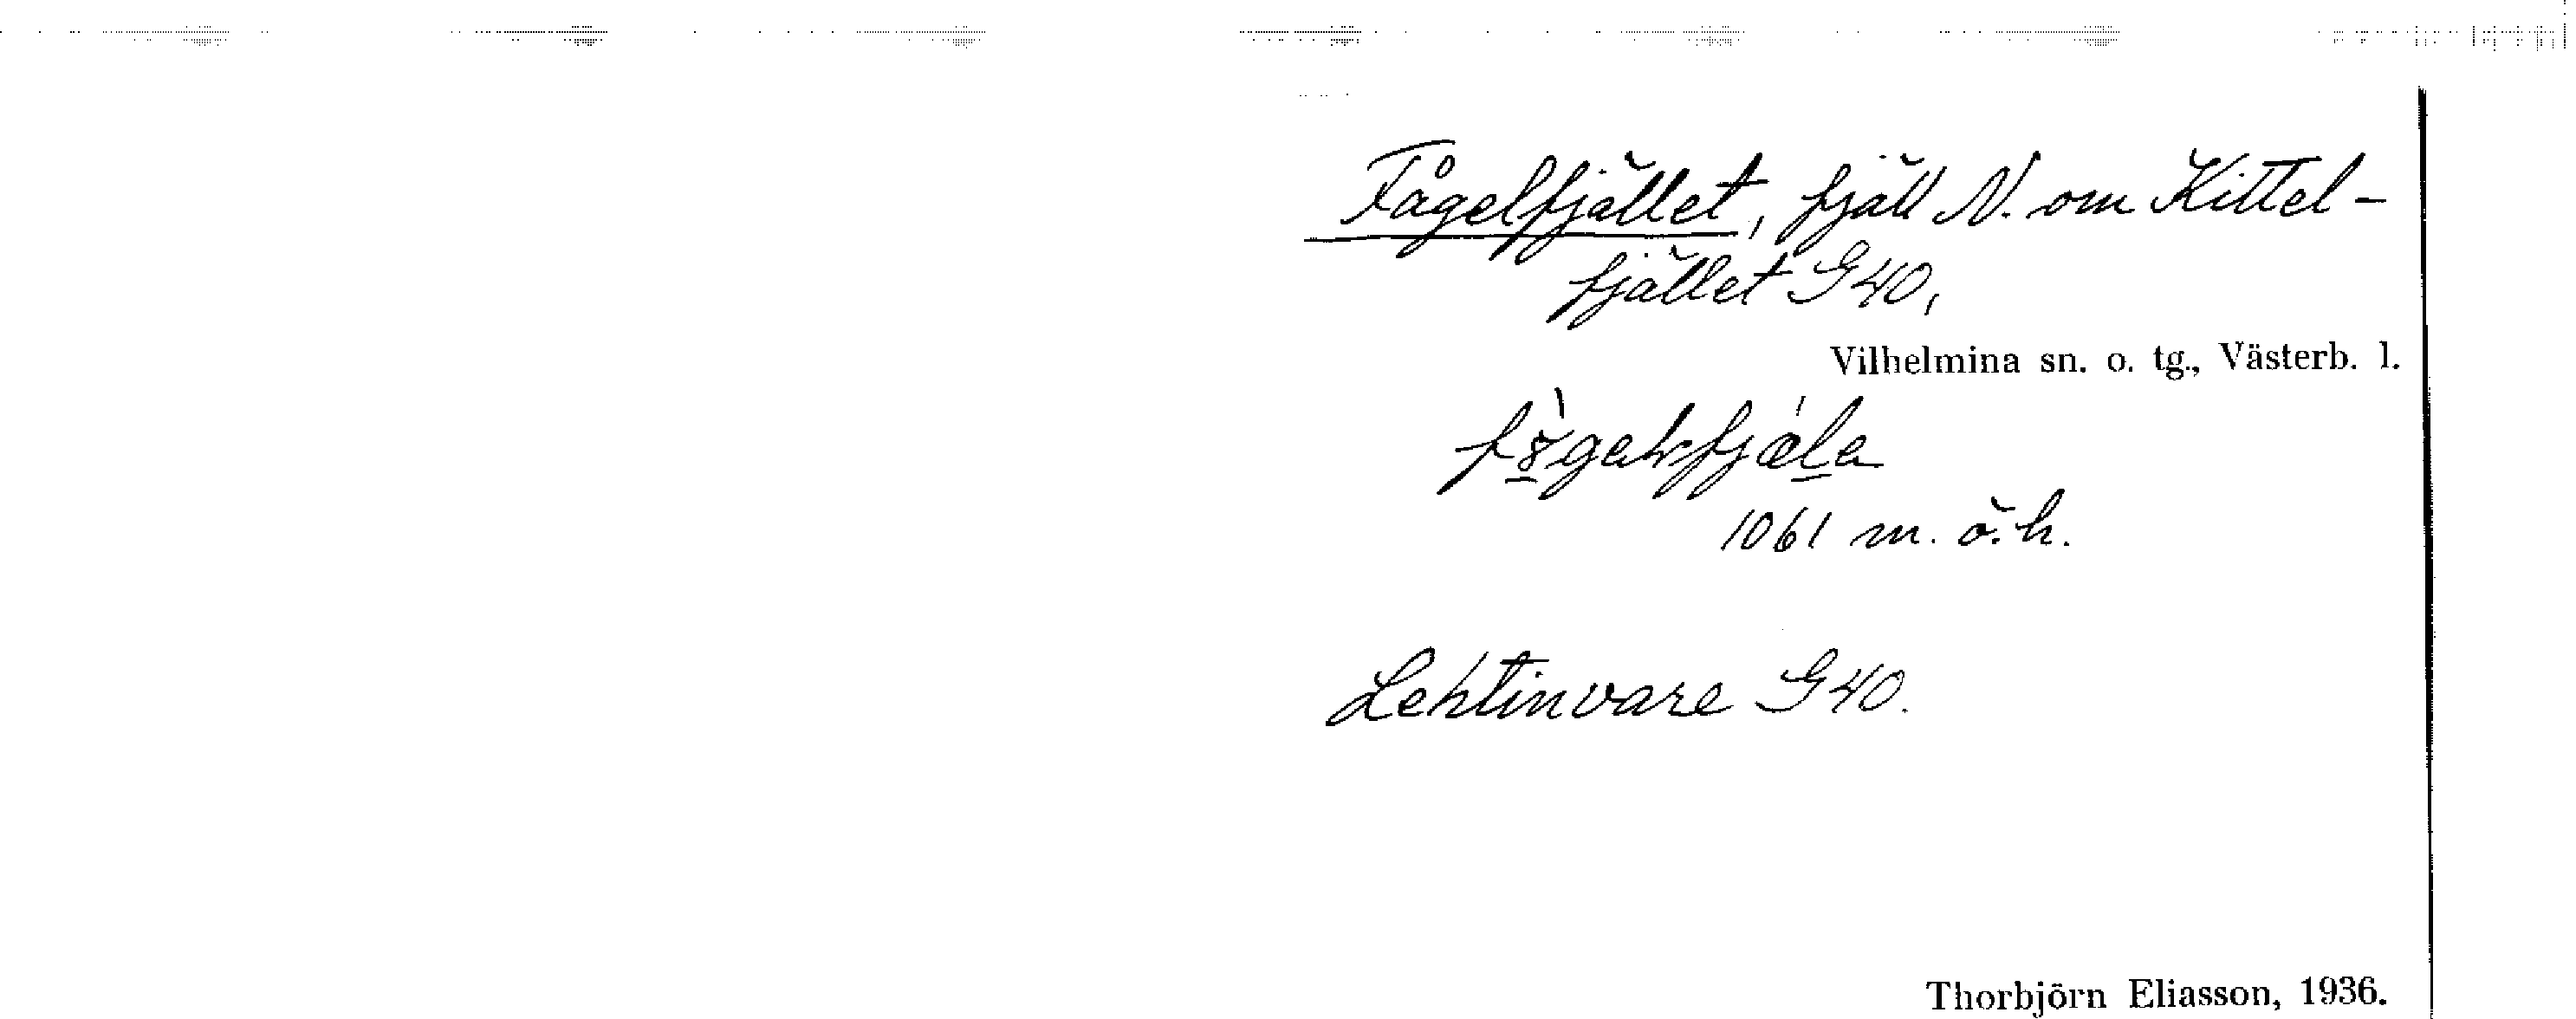 Fågelfjället, fjäll N. om Kittel-
fjället G40,
Vilhelmina sn. o. tg., Västerb. l.
1061 m. ö. h.
Lehtinvare G40.
Thorbjörn Eliasson, 1936.